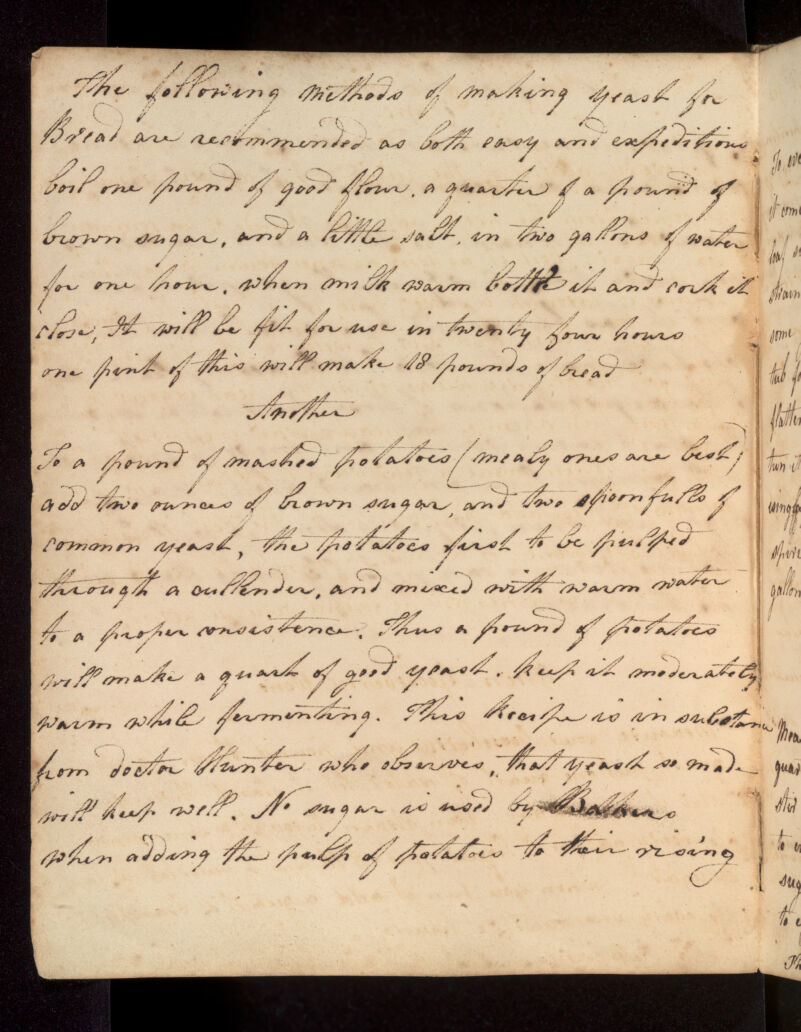 The following methods of making yeast for
Bread are recommended as both easy and expeditious
boil one pound of good flour, a quarter of a pound of
brown sugar, and a little salt, in two gallons of water
for one hour, when milk warm bottle it and cork it
close, It will be fit for use in twenty four hours
one pint of this will make 18 pounds of bread
Another
To a pound of mashed potatoes (mealy ones are best)
add two ounces of brown sugar, and two spoonfulls of
common yeast, the potatoes first to be pulped
through a cullender, and mixed with warm water
to a proper consistence. Thus a pound of potatoes
will make a quart of good yeast. keep it moderately
warm while fermenting. This Recipe is in substance
from doctor Hunter who observes, that yeast so made
will keep well. No sugar is used by Bakers
when adding the pulp of potatoes to their rising
To
it
some
tub
turn
gallon
quar
to
to